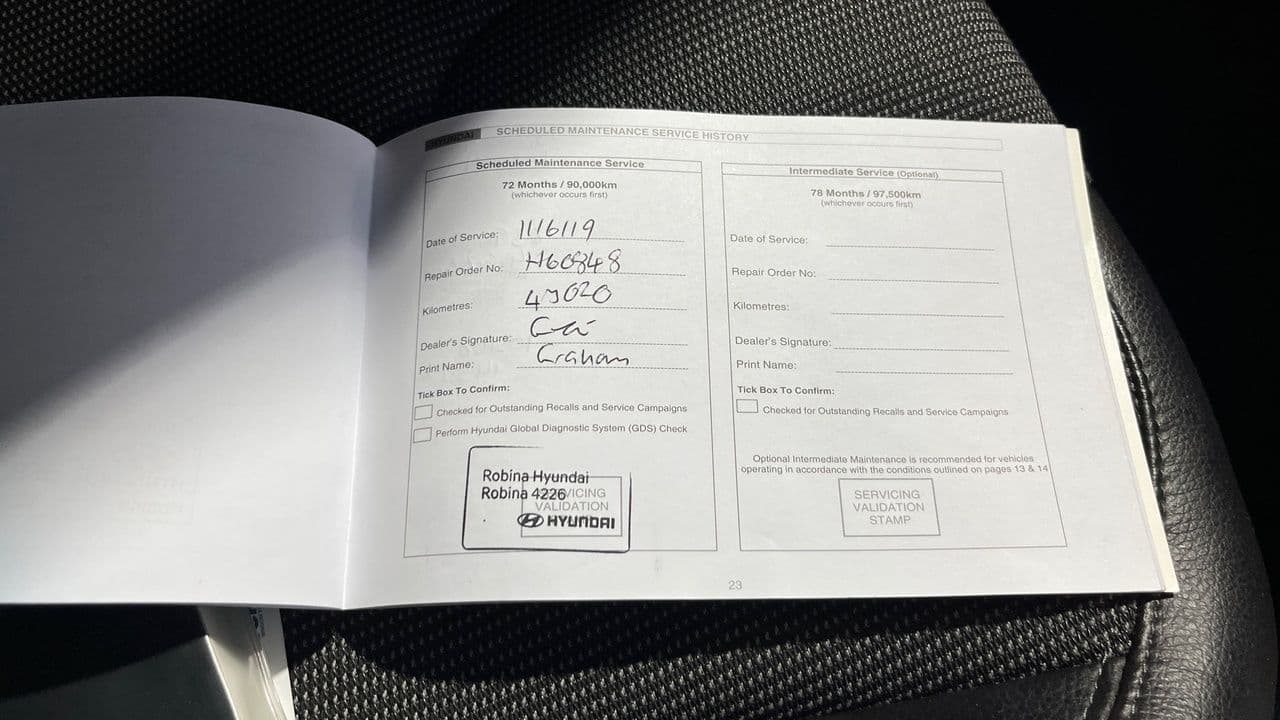 HYUNDAI SCHEDULED MAINTENANCE SERVICE HISTORY
Scheduled Maintenance Service
72 Months / 90,000km
(whichever occurs first)
Date of Service: 11/6/19
Repair Order No: H60848
Kilometres: 49020
Dealer's Signature:
Print Name: Graham
Tick Box To Confirm:
Checked for Outstanding Recalls and Service Campaigns
Perform Hyundai Global Diagnostic System (GDS) Check
Robina Hyundai
Robina 4226
VICING
VALIDATION
HYUNDAI
Intermediate Service (Optional)
78 Months / 97,500km
(whichever occurs first)
Date of Service:
Repair Order No:
Kilometres:
Dealer's Signature:
Print Name:
Tick Box To Confirm:
Checked for Outstanding Recalls and Service Campaigns
Optional Intermediate Maintenance is recommended for vehicles
operating in accordance with the conditions outlined on pages 13 & 14
SERVICING
VALIDATION
STAMP
23